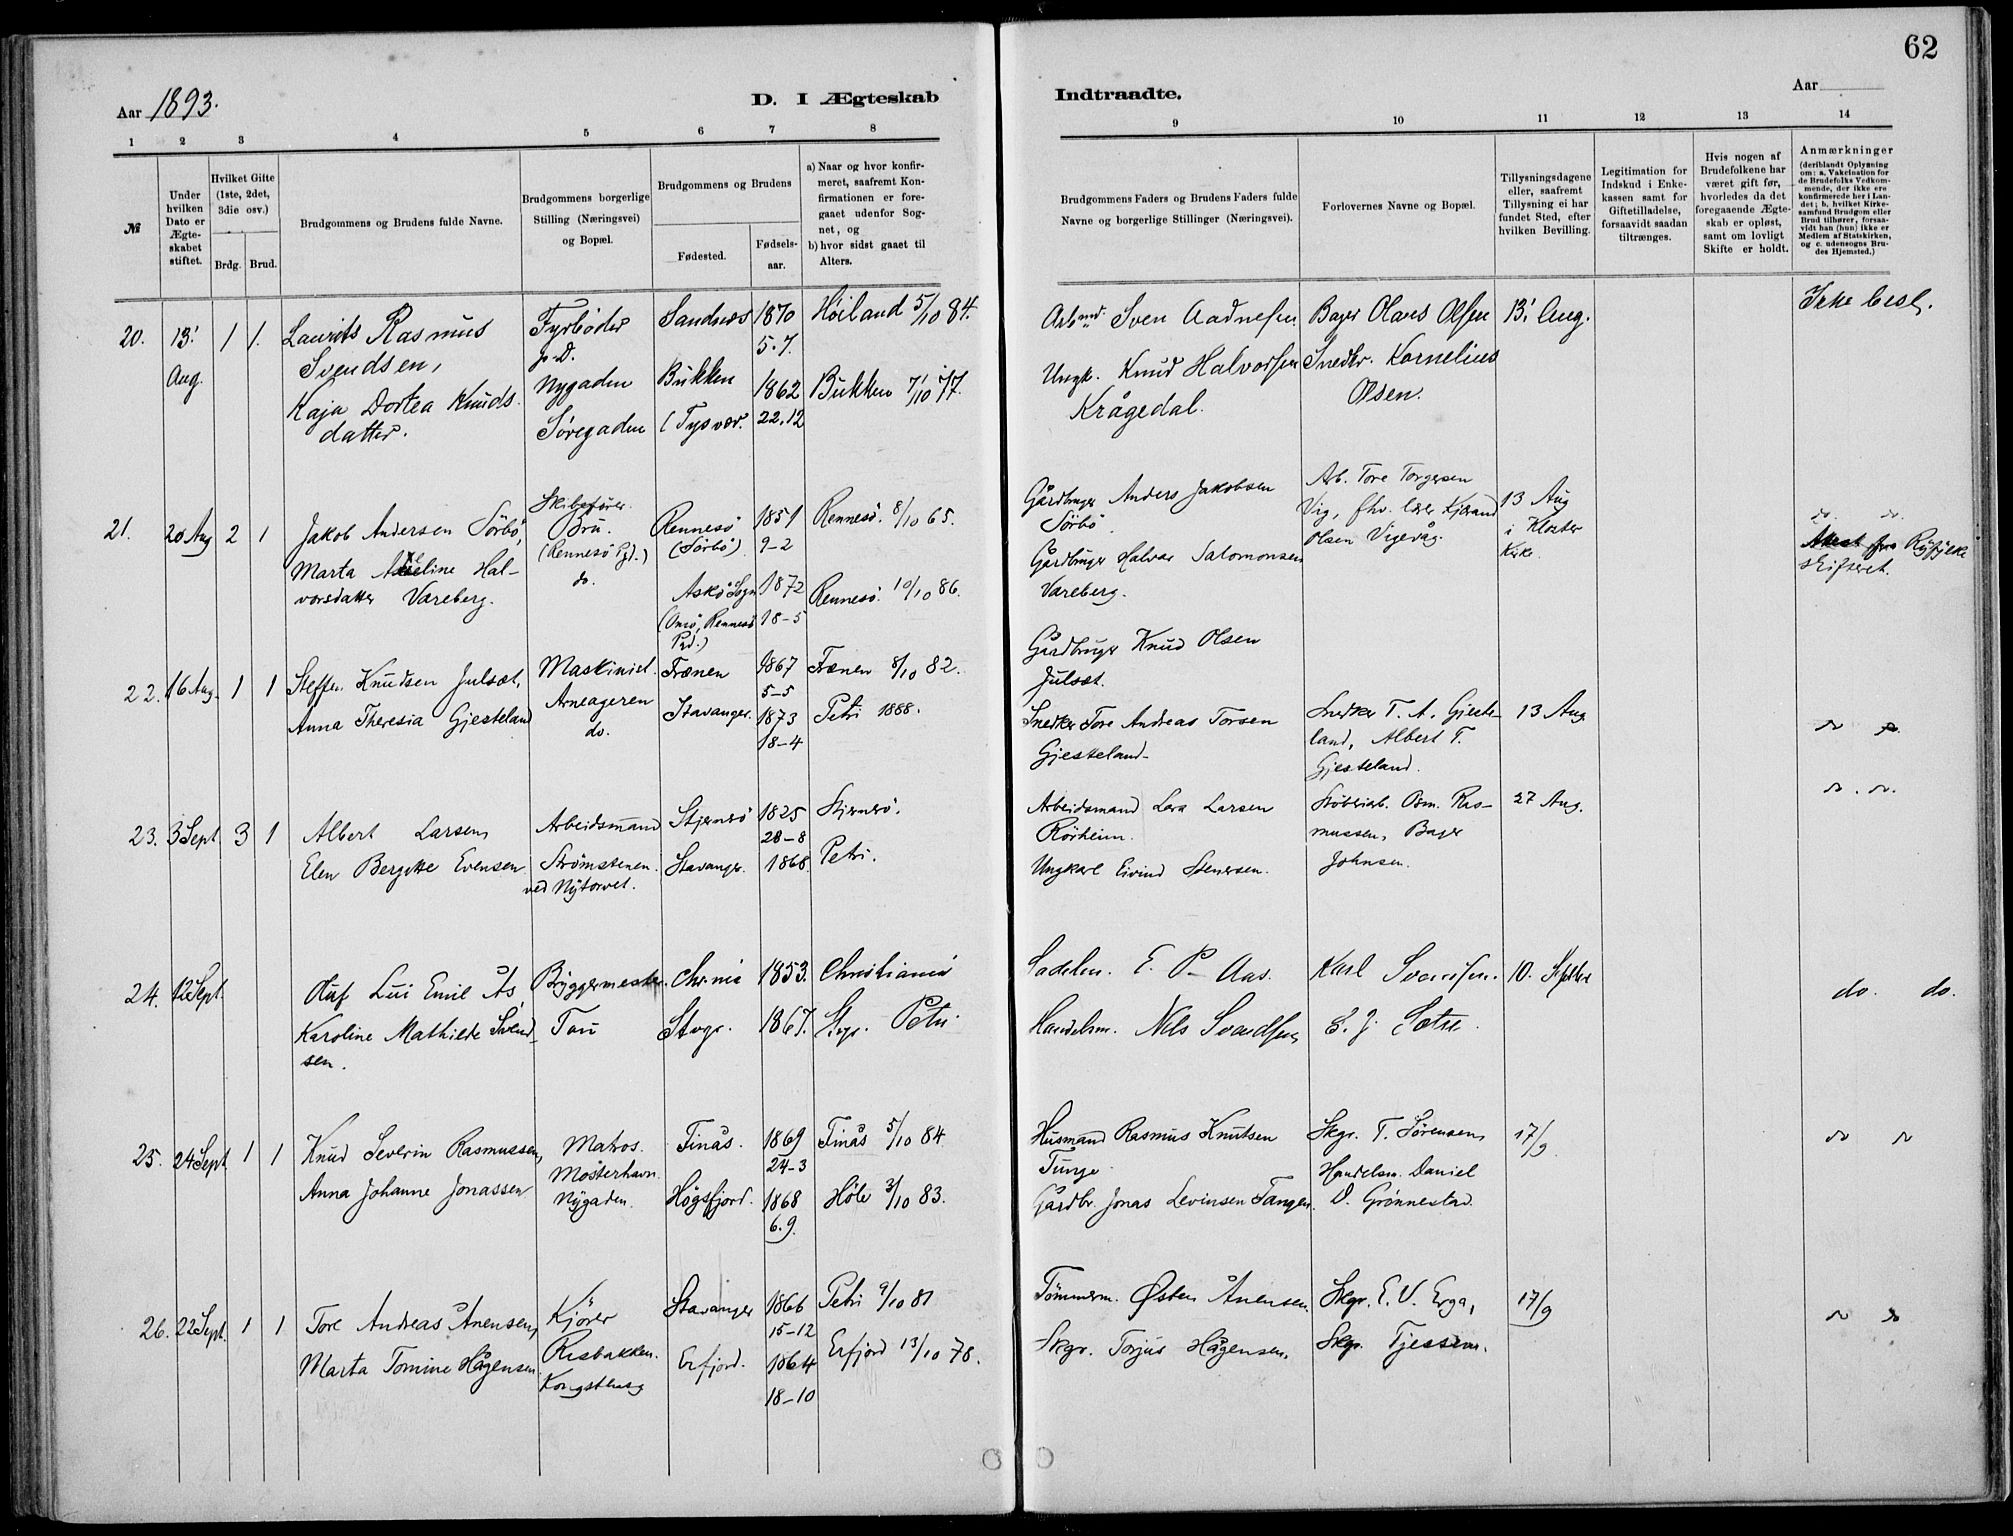 62
Aar 1893.
D. I Ægteskab
Indtraadte.
Aar
1 2 3 4 5 6 7 8
9 10 11 12 13 14
№
Under
hvilken
Dato er
Ægte-
skabet
stiftet.
Hvilket Gifte
(1ste, 2det,
3die osv.)
Brdg. Brud.
Brudgommens og Brudens fulde Navne.
Brudgommens borgerlige
Stilling (Næringsvei)
og Bopæl.
Brudgommens og Brudens
Fødested.
Fødsels-
aar.
a) Naar og hvor konfir-
meret, saafremt Kon-
firmationen er fore-
gaaet udenfor Sog-
net, og
b) hvor sidst gaaet til
Alters.
Brudgommens Faders og Brudens Faders fulde
Navne og borgerlige Stillinger (Næringsvei).
Forlovernes Navne og Bopæl.
Tillysningsdagene
eller, saafremt
Tillysning ei har
fundet Sted, efter
hvilken Bevilling.
Legitimation for
Indskud i Enke-
kassen samt for
Giftetilladelse,
forsaavidt saadan
tiltrænges.
Hvis nogen af
Brudefolkene har
været gift før,
hvorledes da det
foregasende Ægte-
skab er opløst,
samt om lovligt
Skifte er holdt.
Anmærkninger
(deriblandt Oplysning
om: a. Vakcination for
de Brudefolks Vedkom-
mende, der ikke ere
konfirmerede her i Lan-
det; b. hvilket Kirke-
samfund Brudgom eller
Brud tilhører, forsaa-
vidt han (hun) ikke er
Medlem af Statskirken,
og c. udensogns Bru-
des Hjemsted.)
20. 13' Aug. 1 1.
Laurits Rasmus
Svendsen,
Kaja Dortea Knuds-
datter.
Fyrbøder
Nygaden
Søregaden
Sandnes
Bukken
(Tysvær.
1870
5.7.
1862
22.12
Høiland 5/10 84.
Bukken 7/10 77.
Arbmd. Sven Aadnesen
Ungk. Knud Halvorsen
Krågedal.
Bager Olaves Olsen
Snedkr. Kornelius
Olsen.
13' Aug.
Ikke besl.
21. 20 Aug 2 1
Jakob Andersen Sörbö,
Marta Aseline Hal-
vorsdatter Vareberg.
Skibsfører.
Bru.
(Rennesö Pgd.)
do.
Rennesö
(Sörbö)
Askö Sogn
(Omsö, Rennesö
Pgd.)
1851
9-2
1872
18-5
Rennesö. 8/10 65.
Rennesö. 10/10 86.
Gårdbruger Anders Jakobsen
Sörbö
Gårdbruger Halvar Salomonsen
Vareberg.
Arb. Tore Torgersen
Vig, fhv. lærer Kjærand
Olsen Vigevåg.
13 Aug
i Kloster
Kirke
do. do.
Attest fra Ryfylke
skifteret.
22. 16 Aug. 1 1
Steffen Knudsen Julsæt,
Anna Theresia Gjesteland
Maskinist.
Arneageren
do.
Frænen
Stavanger.
1867
5-5
1873
18-4
Frænen 8/10 82.
Petri 1888.
Gårdbruger Knud Olsen
Julsæt.
Snedker Tore Andreas Torsen
Gjesteland-
Snedker T. A. Gjeste-
land, Albert T.
Gjesteland.
13 Aug
do do.
23. 3 Sept 3 1
Albert Larsen,
Elen Bergitte Evensen
Arbeidsmand
Strömstenen.
ved Nytorvet.
Stjernerö
Stavanger.
1825
28-8
1868.
Stjernerö.
Petri.
Arbeidsmand Lars Larsen
Rörheim.
Ungkarl Eivind Stenersen.
Støberiarb. Osm. Ras-
mussen, Bager
Johnsen.
27 Aug.
do. do.
24. 12 Sept.
Oluf Lui Emil Ås,
Karoline Mathilde Svend-
sen.
Bryggermester.
Tau
Chr.nia
Stvgr.
1853.
1867.
Christiania
Stvgr. Petri
Sadelm. E. P. Aas.
Handelsm. Nils Svendsen,
Karl Svendsen.
E. J. Sætre.
10. Septbr
do. do.
25. 24 Sept 1 1
Knud Severin Rasmussen,
Anna Johanne Jonassen
Matros.
Mosterhavn.
Nygaden.
Finås.
Högsfjord.
1869
24-3
1868
6.9.
Finås 5/10 84
Höle 3/10 83.
Husmand Rasmus Knutsen
Tunge.
Gårdbr. Jonas Levinsen Tangen.
Skgr. T. Sörensen,
Handelsm. Daniel
D. Grönnestad.
17/9.
do do
26. 22 Sept. 1 1
Tore Andreas Ånensen,
Marta Tomine Hågensen.
Kjører
Risbakken.
Kongsthusg
Stavanger
Erfjord.
1866
15-12
1864
18-10
Petri 9/10 81
Erfjord 13/10 78.
Tömmerm. Østen Ånensen.
Skgr. Torjus Hågensen.
Skgr. E. V. Erga,
Skgr. Tjessem.
17/9
do do